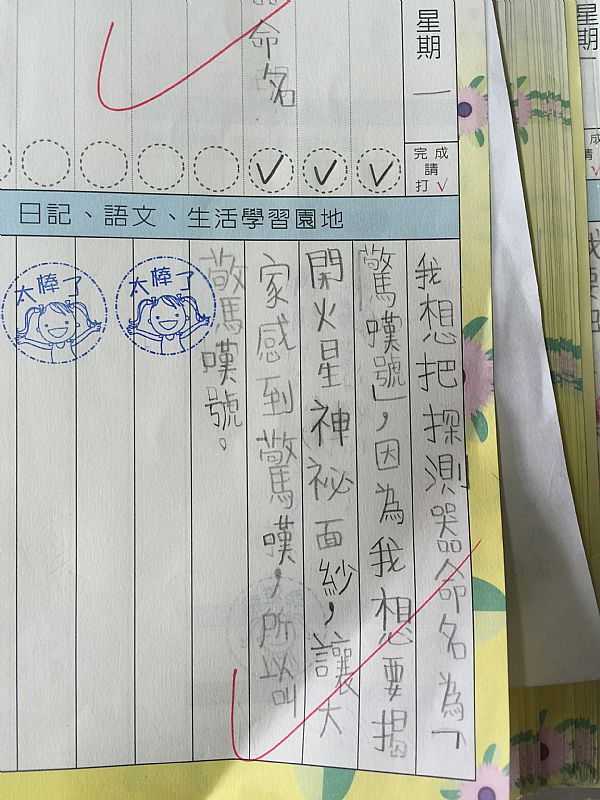 星期
一
命名
完成
請
打√
日記、語文、生活學習園地
我想把探測器命名為「
驚嘆號」，因為我想要揭
開火星神祕面紗，讓大
家感到驚嘆，所以叫
驚嘆號。
太棒了
太棒了
星期